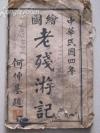 中華民國四年
繪圖
老殘游記